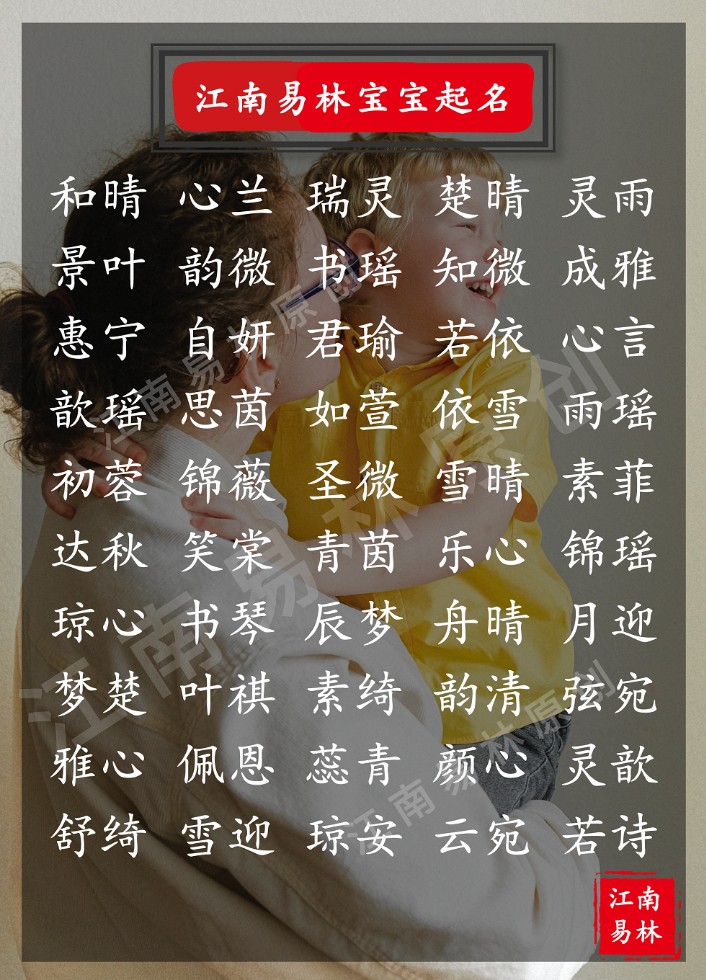 江南易林宝宝起名
和晴 心兰 瑞灵 楚晴 灵雨
景叶 韵微 书瑶 知微 成雅
惠宁 自妍 君瑜 若依 心言
歆瑶 思茵 如萱 依雪 雨瑶
初蓉 锦薇 圣微 雪晴 素菲
达秋 笑棠 青茵 乐心 锦瑶
琼心 书琴 辰梦 舟晴 月迎
梦楚 叶祺 素绮 韵清 弦宛
雅心 佩恩 蕊青 颜心 灵歆
舒绮 雪迎 琼安 云宛 若诗
江南
易林
江南易林原创
江南易林原创
江南易林原创